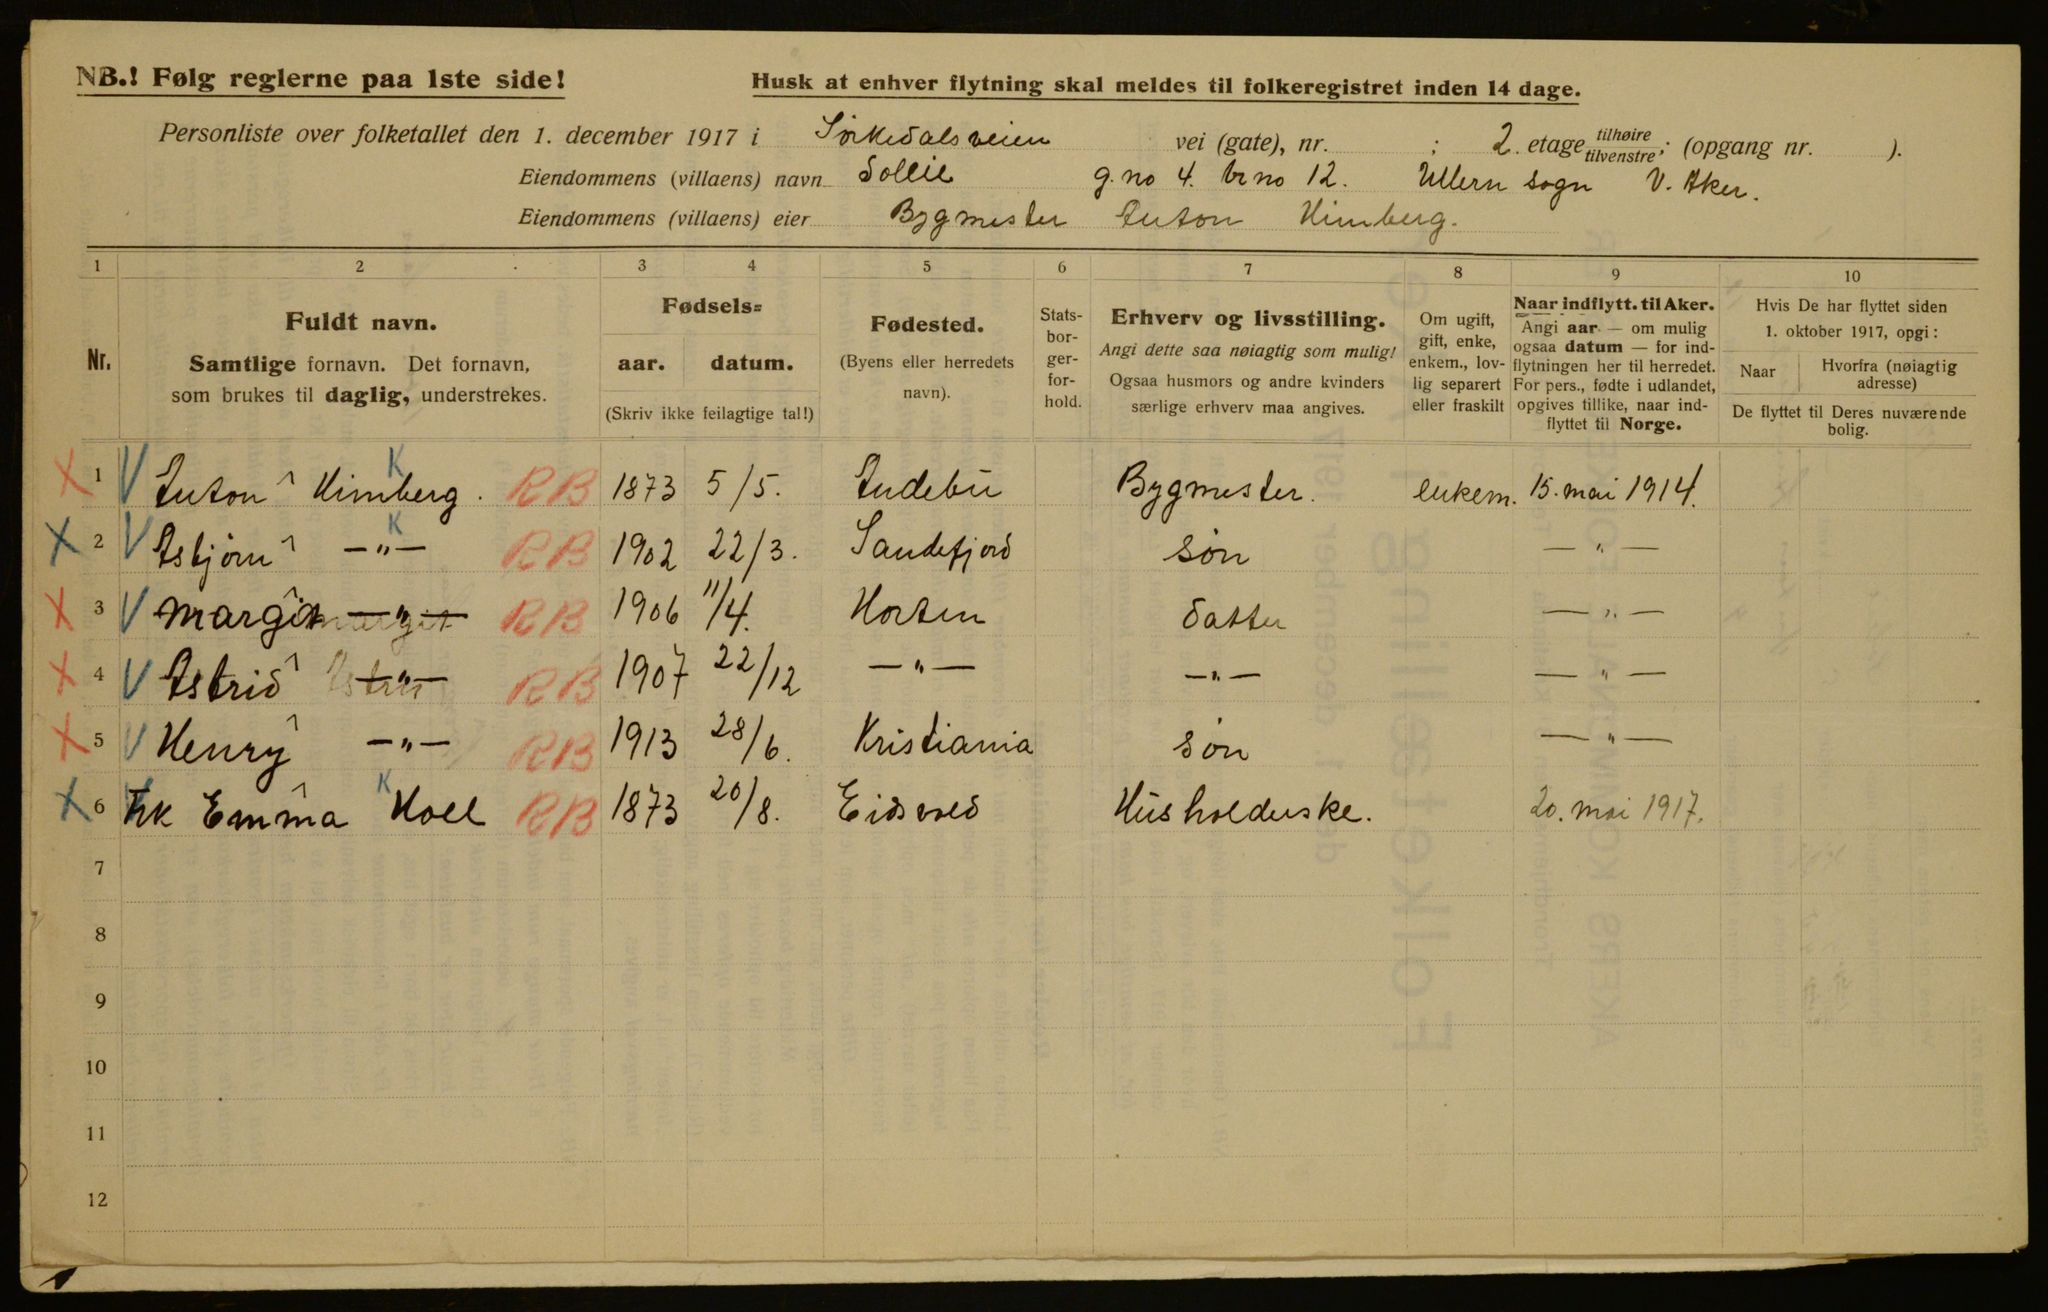 NB.! Følg reglerne paa 1ste side!
Husk at enhver flytning skal meldes til folkeregistret inden 14 dage.
Personliste over folketallet den 1. december 1917 i Sörkedalsveien vei (gate), nr. ; 2. etage tilhøire tilvenstre ; (opgang nr. ).
Eiendommens (villaens) navn Sollie g. no 4. br no 12. Ullern sogn V. Aker.
Eiendommens (villaens) eier Bygmester Anton Himberg.
1 2 3 4 5 6 7 8 9 10
Nr.
Fuldt navn.
Samtlige fornavn. Det fornavn,
som brukes til daglig, understrekes.
Fødsels=
aar. datum.
(Skriv ikke feilagtige tal!)
Fødested.
(Byens eller herredets
navn).
Stats-
bor-
ger-
for-
hold.
Erhverv og livsstilling.
Angi dette saa nøiagtig som mulig!
Ogsaa husmors og andre kvinders
særlige erhverv maa angives.
Om ugift,
gift, enke,
enkem., lov-
lig separert
eller fraskilt
Naar indflytt. til Aker.
Angi aar — om mulig
ogsaa datum — for ind-
flytningen her til herredet.
For pers., fødte i udlandet,
opgives tillike, naar ind-
flyttet til Norge.
Hvis De har flyttet siden
1. oktober 1917, opgi:
Naar
Hvorfra (nøiagtig
adresse)
De flyttet til Deres nuværende
bolig.
X 1 V Anton Himberg. K RB 1873 5/5. Andebu Bygmester. enkem. 15. mai 1914.
X 2 V Asbjörn —"— K RB 1902 22/3. Sandefjord sön — " —
X 3 V Margit —"— RB 1906 11/4. Horten datter — " —
X 4 V Astrid —"— RB 1907 22/12 —"— —"— — " —
X 5 V Henry —"— RB 1913 28/6. Kristiania sön — " —
X 6 Frk Emma Holl K RB 1873 20/8. Eidsvold Husholderske. 20. mai 1917.
7
8
9
10
11
12